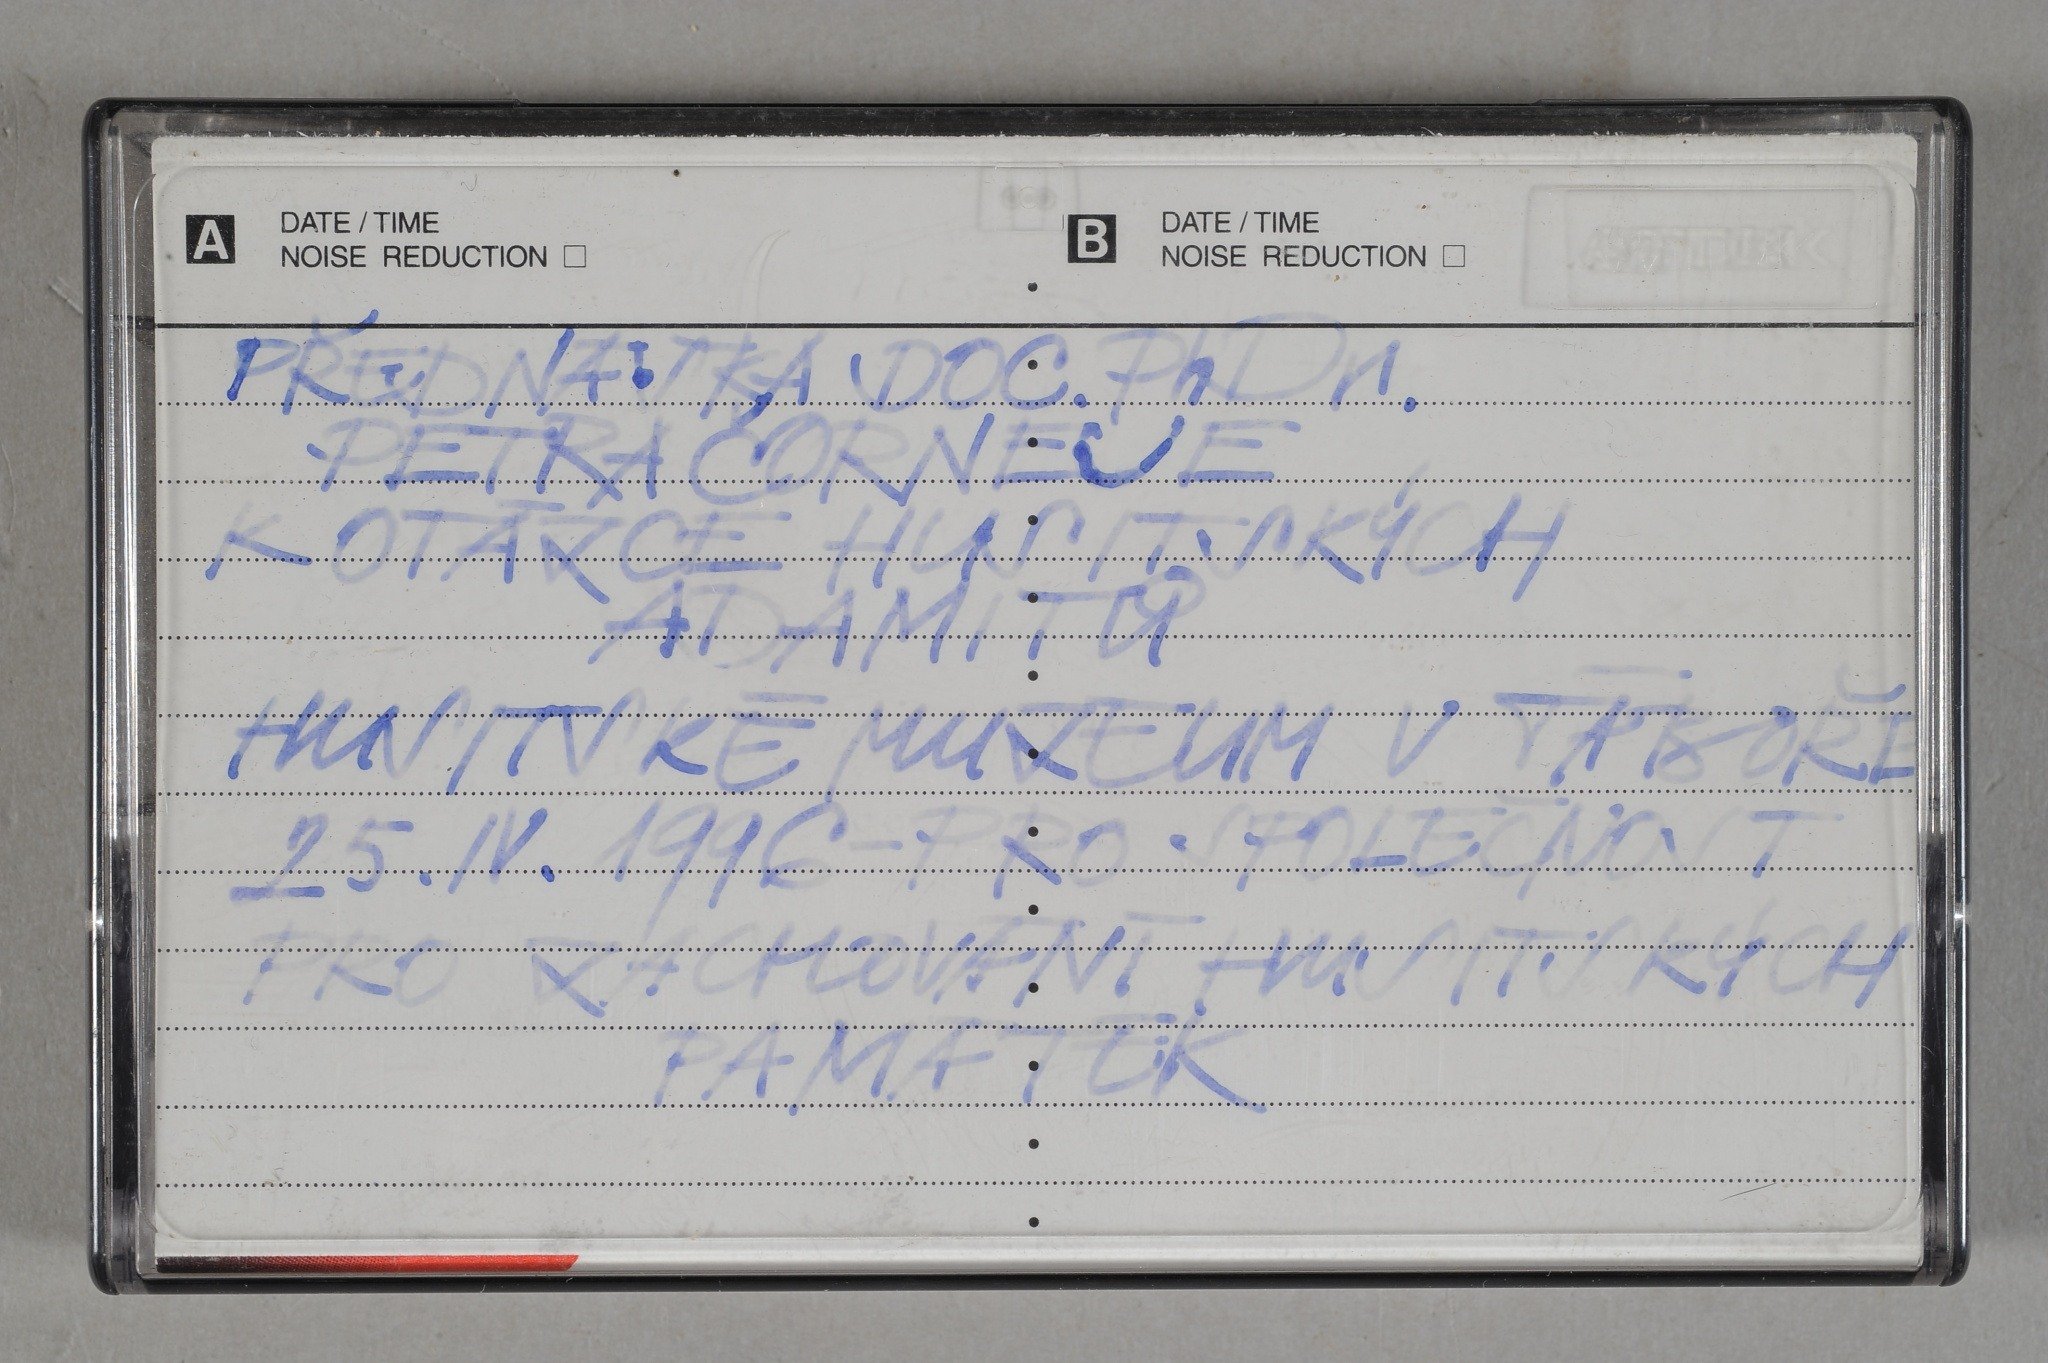 A DATE / TIME
NOISE REDUCTION
B DATE / TIME
NOISE REDUCTION
PŘEDNÁŠKA DOC. PhDr.
PETRA ČORNEJE
K OTÁZCE HUSITSKÝCH
ADAMITŮ
HUSITSKÉ MUZEUM V TÁBOŘE
25. IV. 1996 - PRO SPOLEČNOST
PRO ZACHOVÁNÍ HUSITSKÝCH
PAMÁTEK